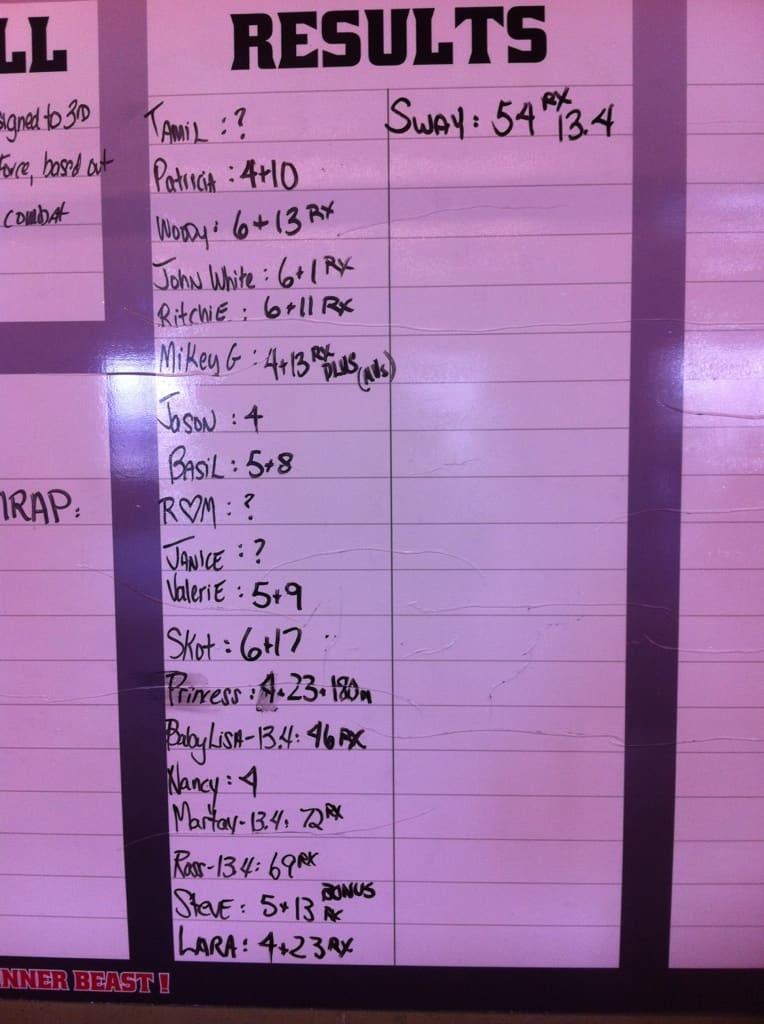 LL
signed to 3RD
Force, based out
combat
MRAP:
NNER BEAST!
RESULTS
TAMIL : ?
Patricia : 4+10
Woody : 6+13 RX
John White : 6+1 RX
RitchiE : 6+11 RX
Mikey G : 4+13 RX PLUS
JASON : 4
BASIL : 5+8
R♡M : ?
JANICE : ?
ValeriE : 5+9
SKot : 6+17
Princess : 4+23+180m
BabyLisA-13.4: 46 RX
Nancy : 4
Martay-13.4: 72 RX
Ross-13.4: 69 RX
SteVE : 5+13 BONUS RX
LARA : 4+23 RX
SWAY : 54 RX 13.4